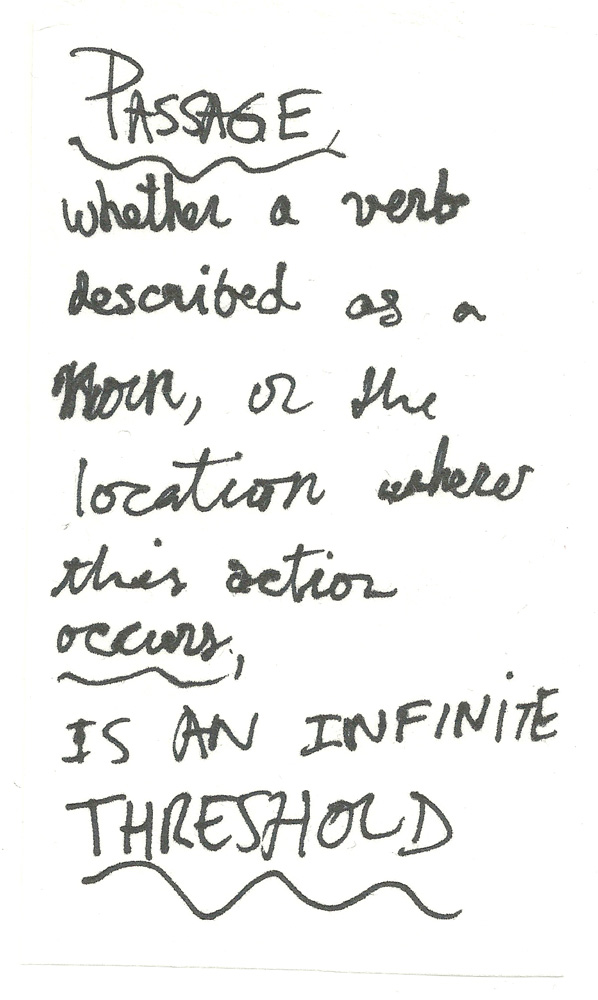 PASSAGE,
whether a verb
described as a
noun, or the
location where
this action
occurs,
IS AN INFINITE
THRESHOLD